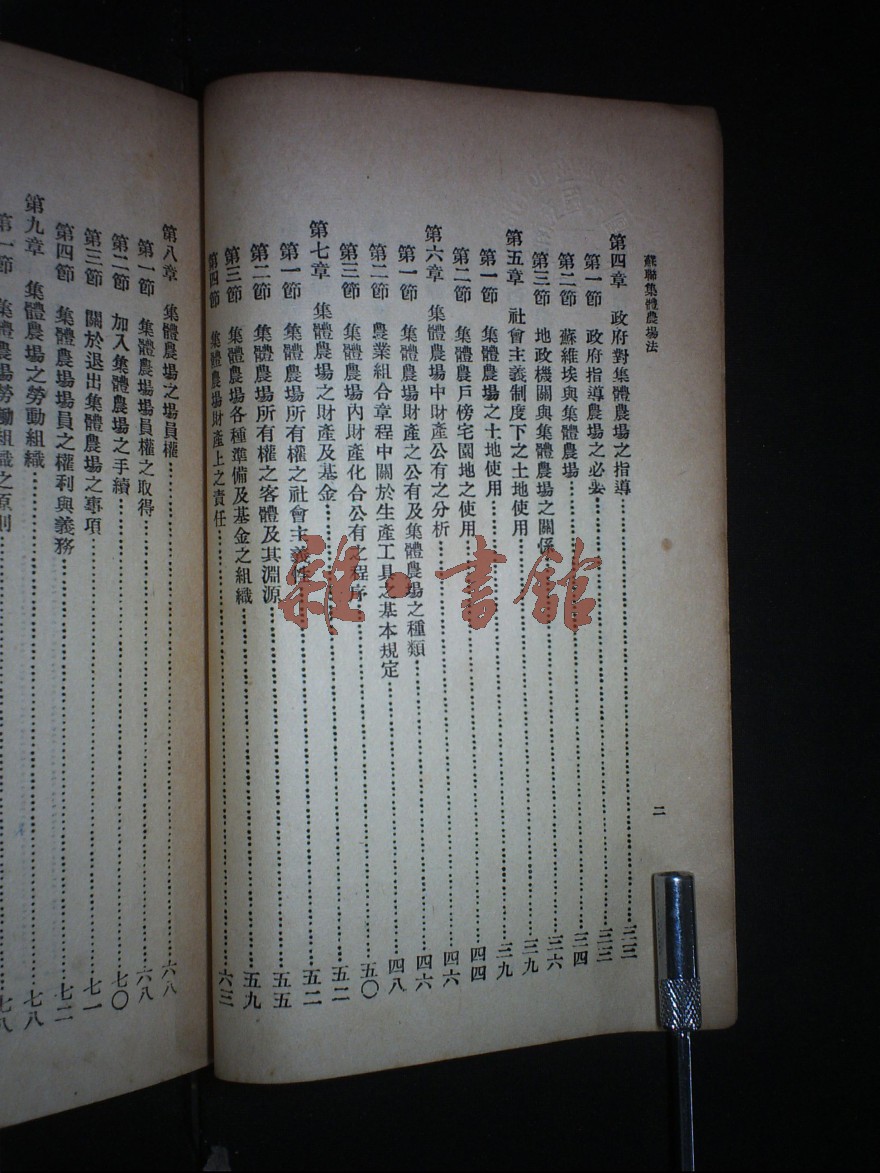 蘇聯集體農場法
二
第四章 政府對集體農場之指導……三三
第一節 政府指導農場之必要……三三
第二節 蘇維埃與集體農場……三四
第三節 地政機關與集體農場之關係……三六
第五章 社會主義制度下之土地使用……三九
第一節 集體農場之土地使用……三九
第二節 集體農戶傍宅園地之使用……四四
第六章 集體農場中財產公有之分析……四六
第一節 集體農場財產之公有及集體農場之種類……四六
第二節 農業組合章程中關於生產工具之基本規定……四八
第三節 集體農場內財產化合公有之程序……五〇
第七章 集體農場之財產及基金……五二
第一節 集體農場所有權之社會主義性……五二
第二節 集體農場所有權之客體及其淵源……五五
第三節 集體農場各種準備及基金之組織……五九
第四節 集體農場財產上之責任……六三
第八章 集體農場之場員權……六八
第一節 集體農場場員權之取得……六八
第二節 加入集體農場之手續……七〇
第三節 關於退出集體農場之事項……七一
第四節 集體農場場員之權利與義務……七二
第九章 集體農場之勞動組織……七八
第一節 集體農場勞働組織之原則……七八
雜·書館